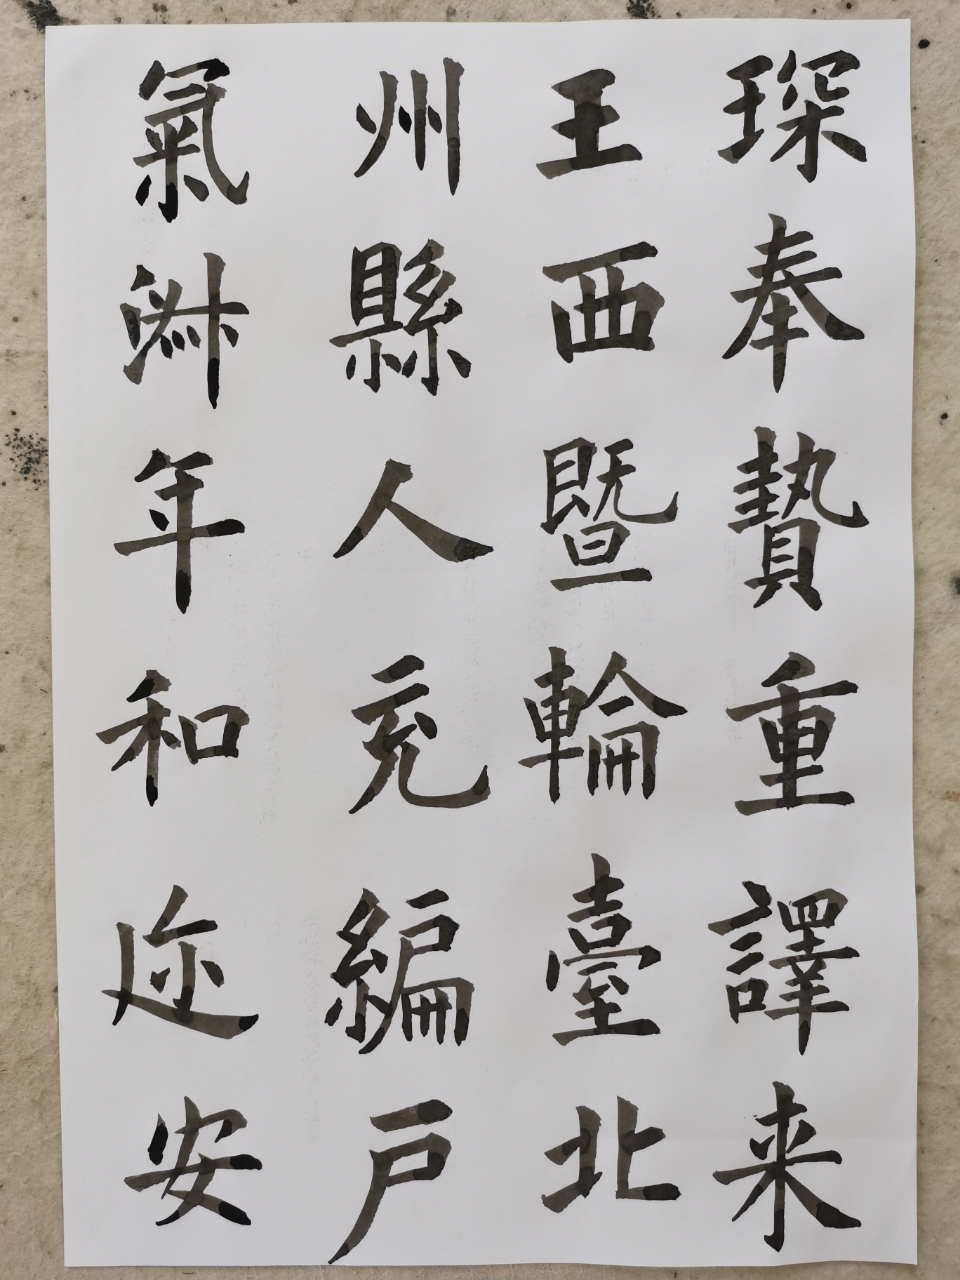 琛奉贄重譯来
王西暨輪臺北
州縣人充編戸
氣淑年和迩安